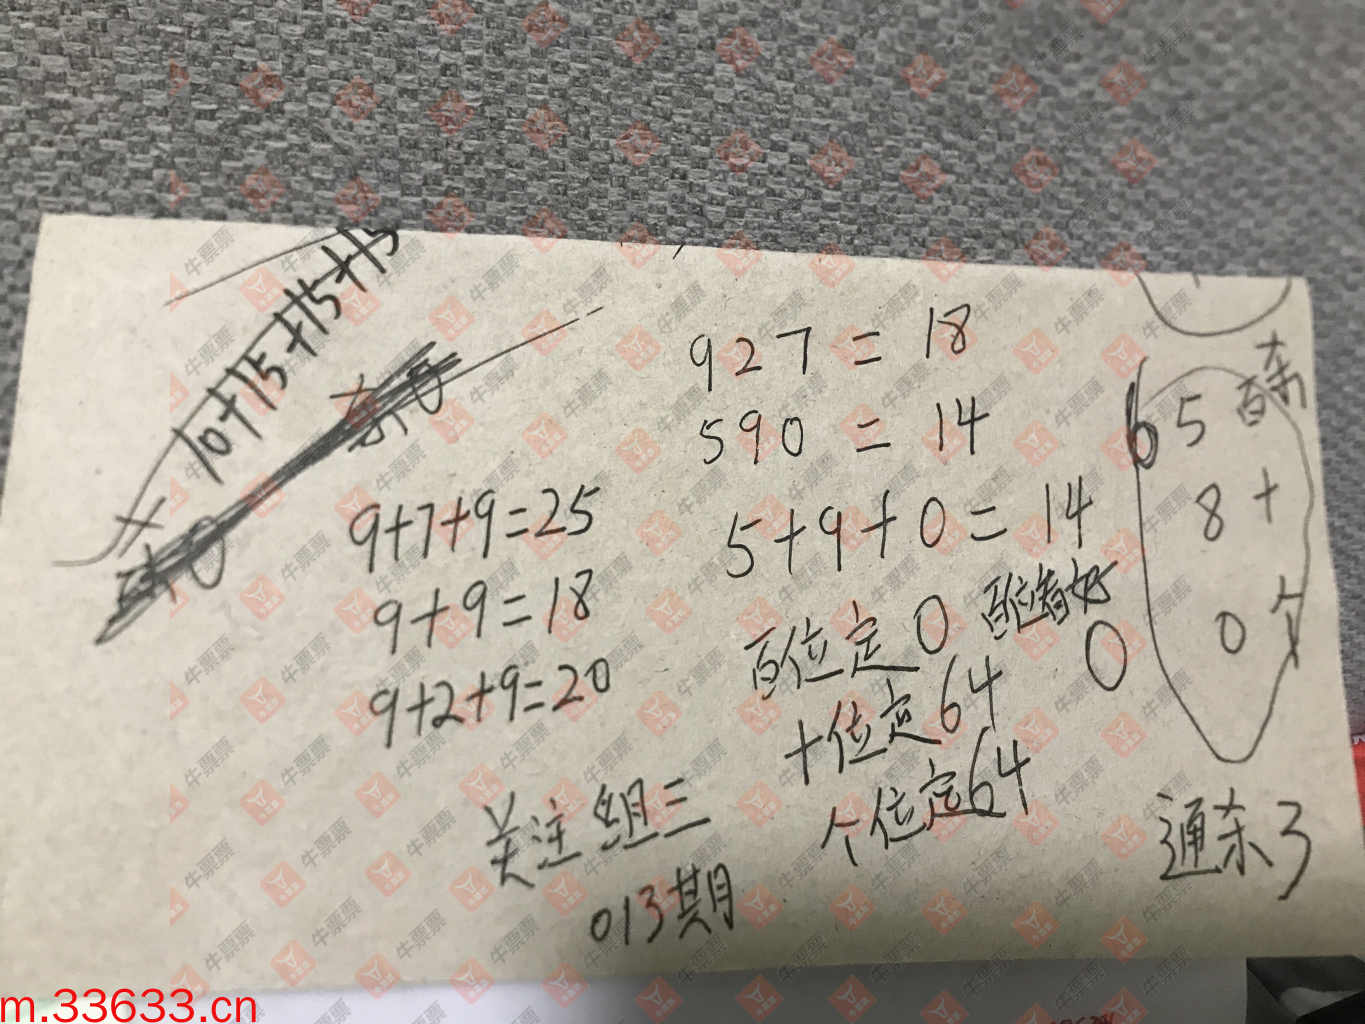 10+15+15+15
927=18
590=14
5+9+0=14
9+7+9=25
9+9=18
9+2+9=20
百位定0
百位看好
0
十位定64
个位定64
关注组三
013期
百杀
6 5
8 十
0 个
通杀3
牛票票
m.33633.cn